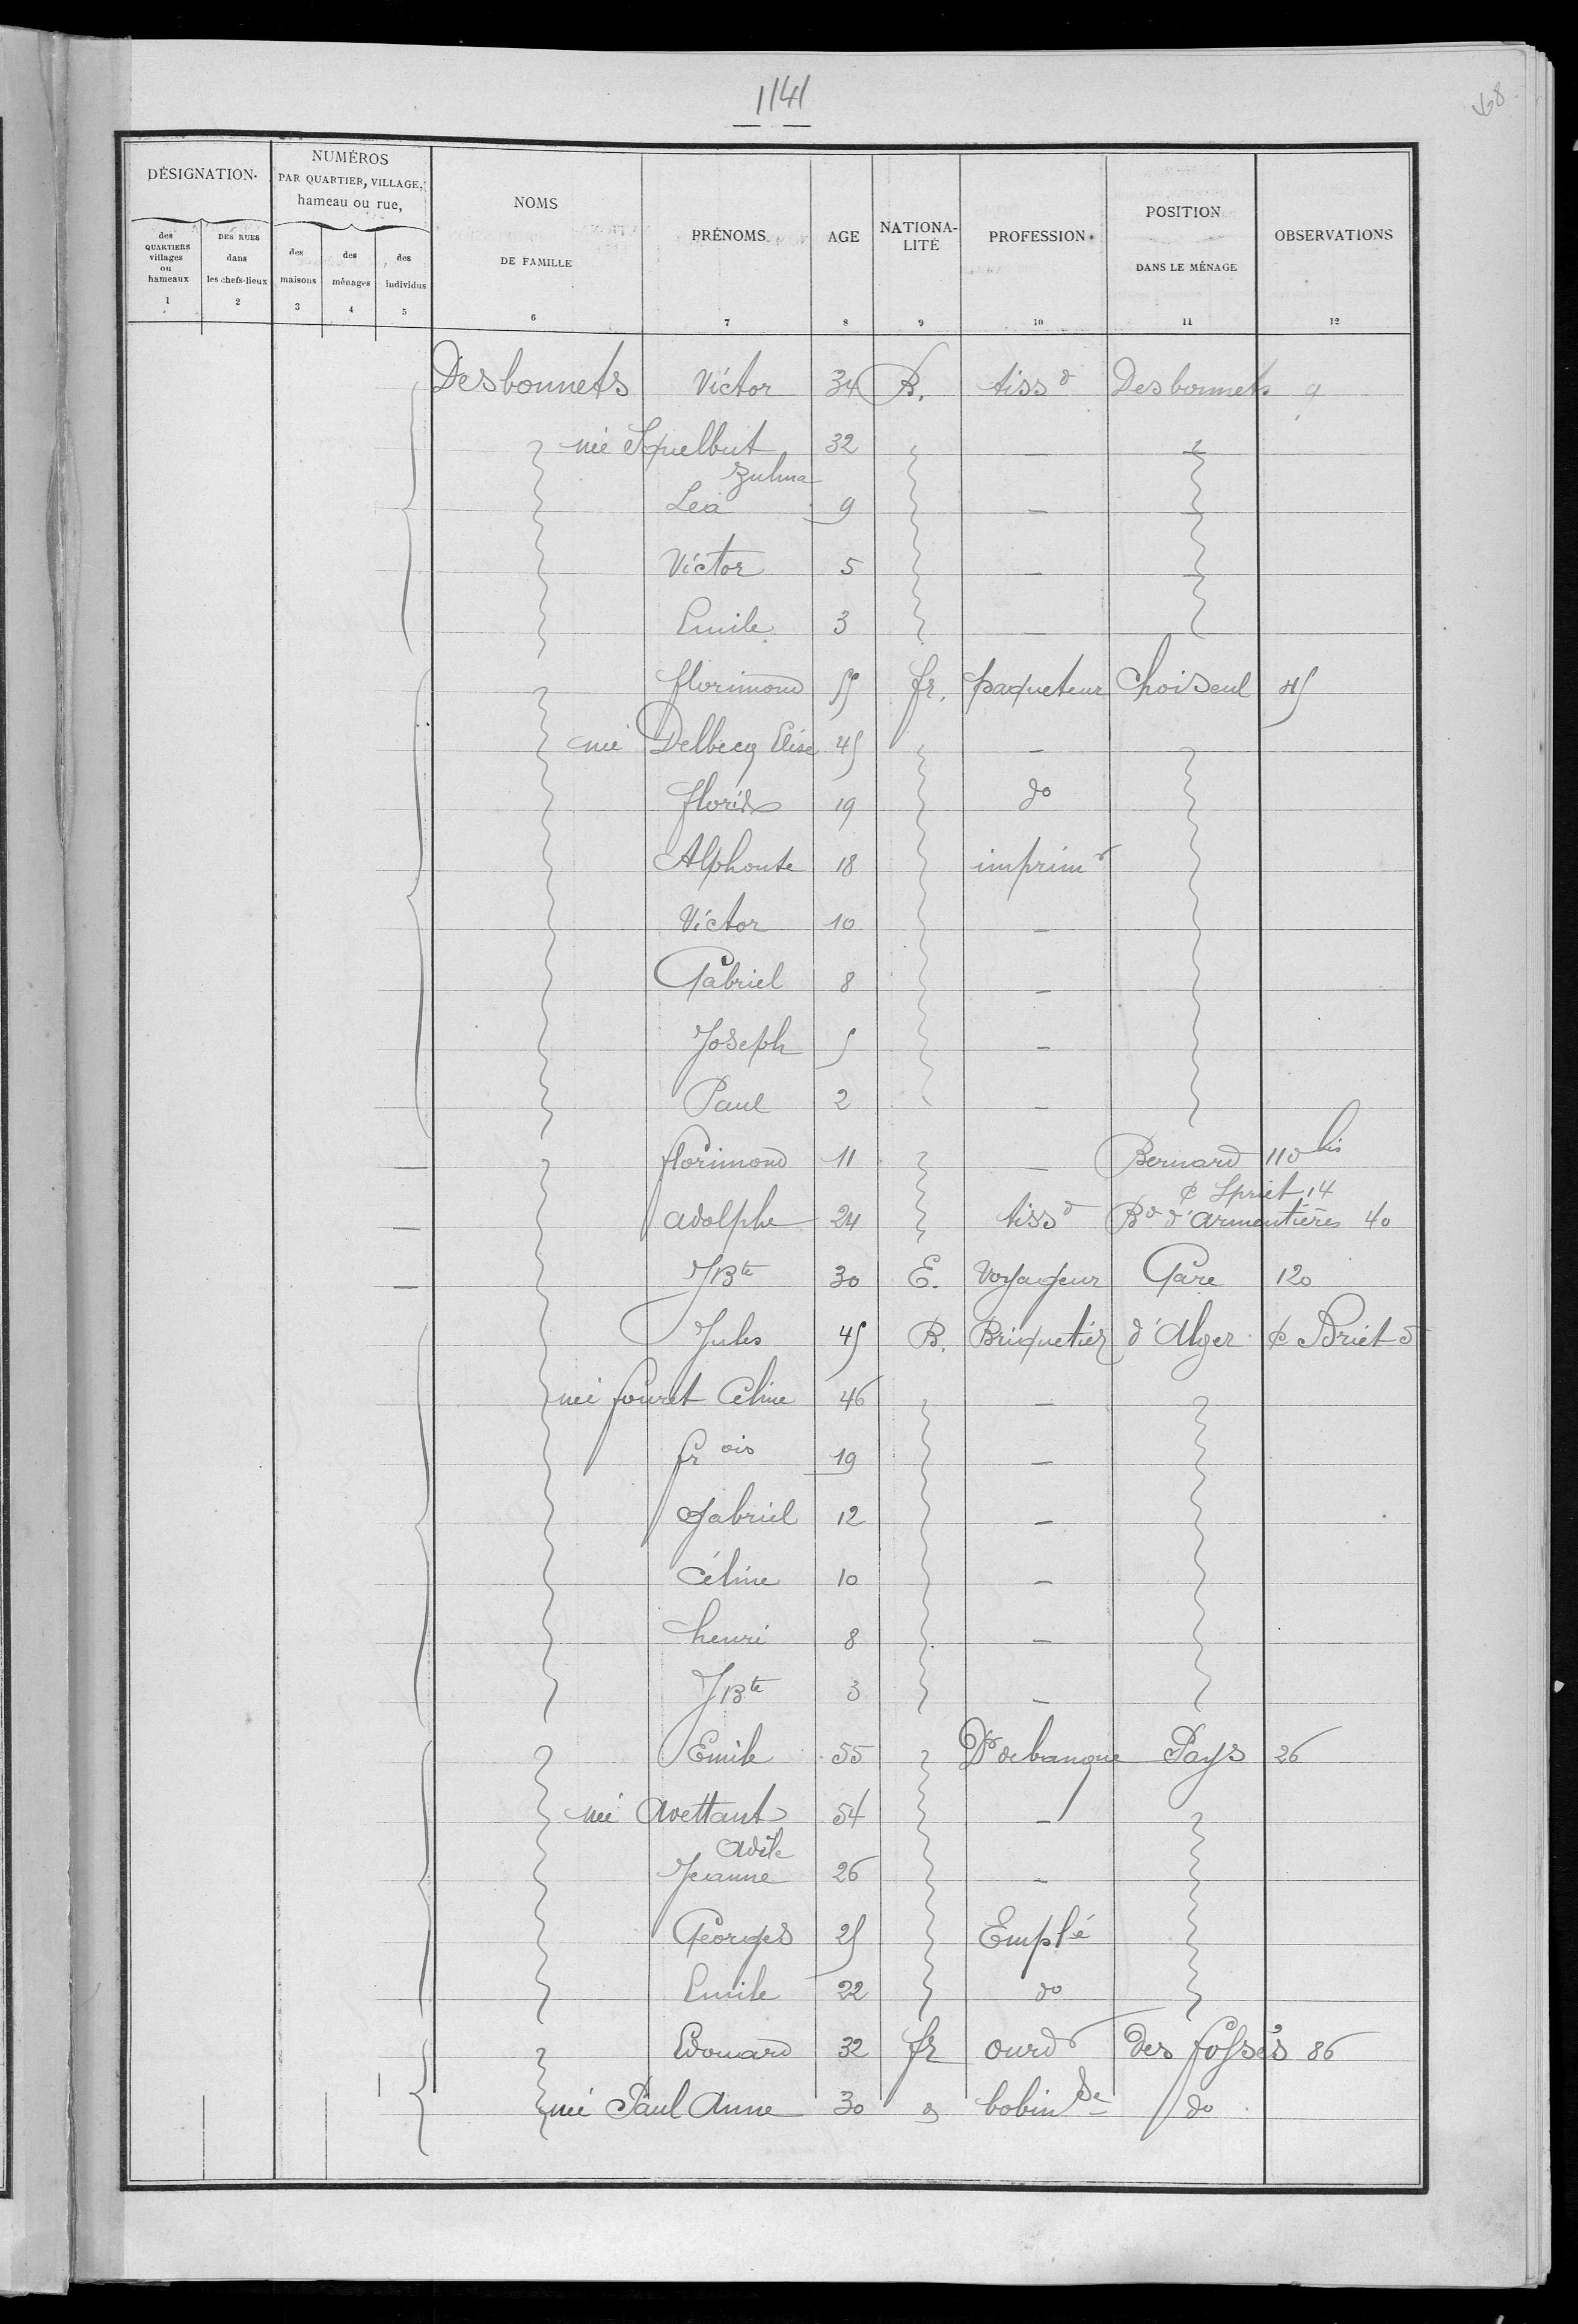 1141
68
DÉSIGNATION.
NUMÉROS
PAR QUARTIER, VILLAGE,
hameau ou rue,
NOMS
DE FAMILLE
PRÉNOMS
AGE
NATIONA-
LITÉ
PROFESSION
POSITION
DANS LE MÉNAGE
OBSERVATIONS
des
QUARTIERS
villages
ou
hameaux
DES RUES
dans
les chefs-lieux
des
maisons
des
ménages
des
individus
1 2 3 4 5 6 7 8 9 10 11 12
Desbonnets Victor 34 B. tissd Desbonnets 9
née Squelbut 32 —
Zulma
Léa 9 —
Victor 5 —
Emile 3 —
florimond 55 fr. paqueteur Choiseul 45
née Delbecq Elise 45 —
floris 19 do
Alphonse 18 imprimr
Victor 10 —
Gabriel 8 —
Joseph 5 —
Paul 2 —
florimond 11 — Bernard 110 bis
¢ Spriet 14
adolphe 24 tissd Bd d'armentières 40
JBte 30 E. Voyageur Gare 120
Jules 45 B. Briquetier d'Alger ¢ Briet 5
née fouret Céline 46 —
frois 19 —
Gabriel 12 —
Céline 10 —
henri 8 —
JBte 3 —
Emile 55 Dr de banque Pays 26
née Avettant 54 —
Adèle
Jeanne 26 —
Georges 25 Emplé
Emile 22 do
Edouard 32 fr ourdr des fossés 86
née Paul Anne 30 bobinse do